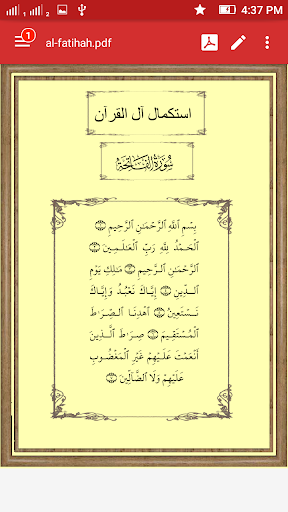 4:37 PM
1
al-fatihah.pdf
استكمال آل القرآن
سُورَةُ الفَاتِحَةِ
بِسْمِ ٱللَّهِ ٱلرَّحْمَٰنِ ٱلرَّحِيمِ ۝
ٱلْحَمْدُ لِلَّهِ رَبِّ ٱلْعَٰلَمِينَ ۝
ٱلرَّحْمَٰنِ ٱلرَّحِيمِ ۝ مَٰلِكِ يَوْمِ
ٱلدِّينِ ۝ إِيَّاكَ نَعْبُدُ وَإِيَّاكَ
نَسْتَعِينُ ۝ ٱهْدِنَا ٱلصِّرَٰطَ
ٱلْمُسْتَقِيمَ ۝ صِرَٰطَ ٱلَّذِينَ
أَنْعَمْتَ عَلَيْهِمْ غَيْرِ ٱلْمَغْضُوبِ
عَلَيْهِمْ وَلَا ٱلضَّآلِّينَ ۝